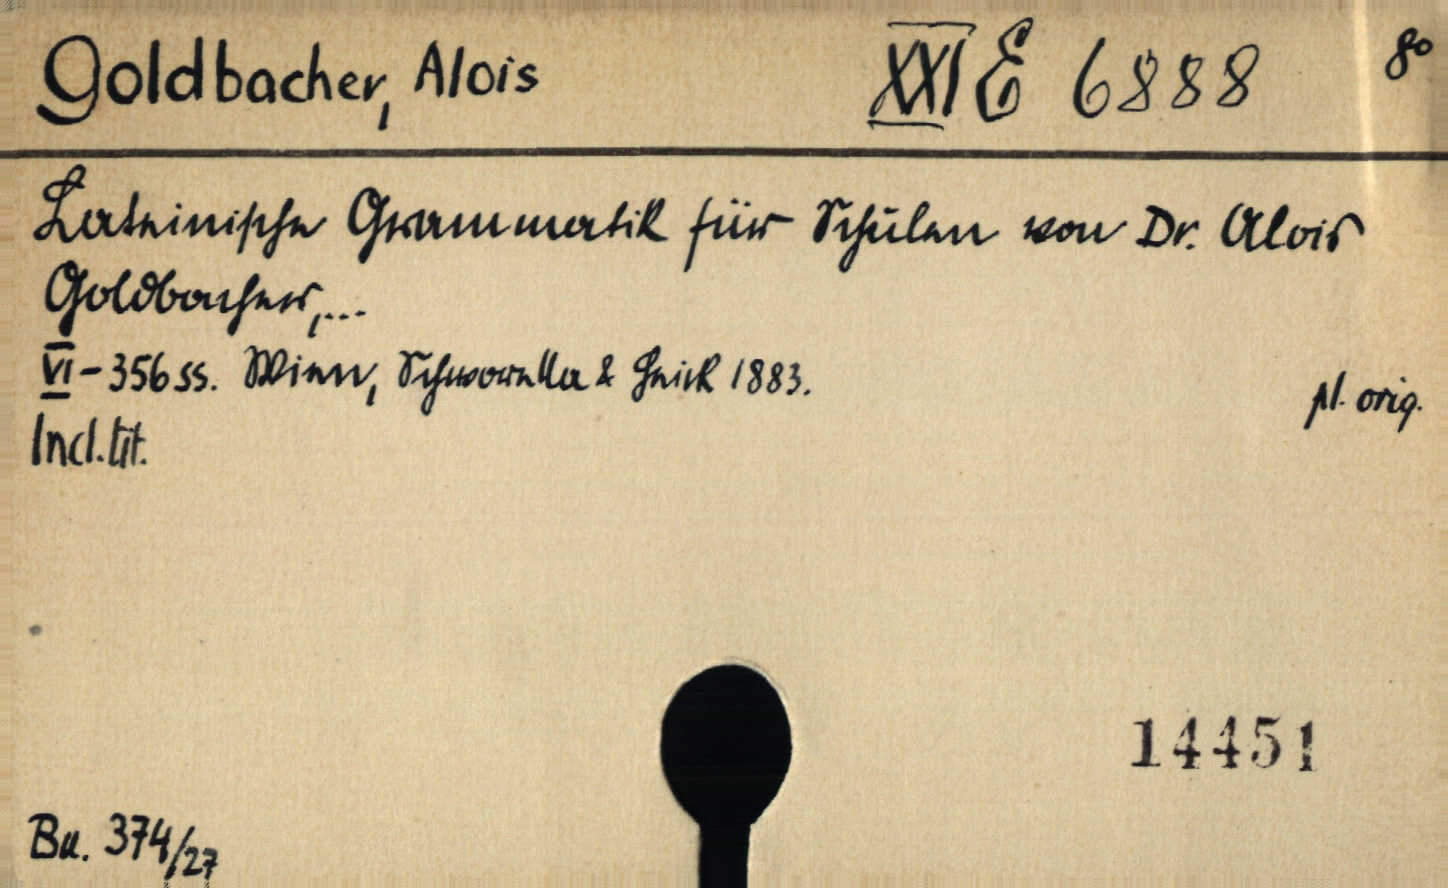 Goldbacher, Alois XXI E 6888 8°
Lateinische Grammatik für Schulen von Dr. Alois
Goldbacher,...
VI-356 ss. Wien, Schworella & Heick 1883. pl. orig.
Incl. tit.
14451
Bu. 374/27